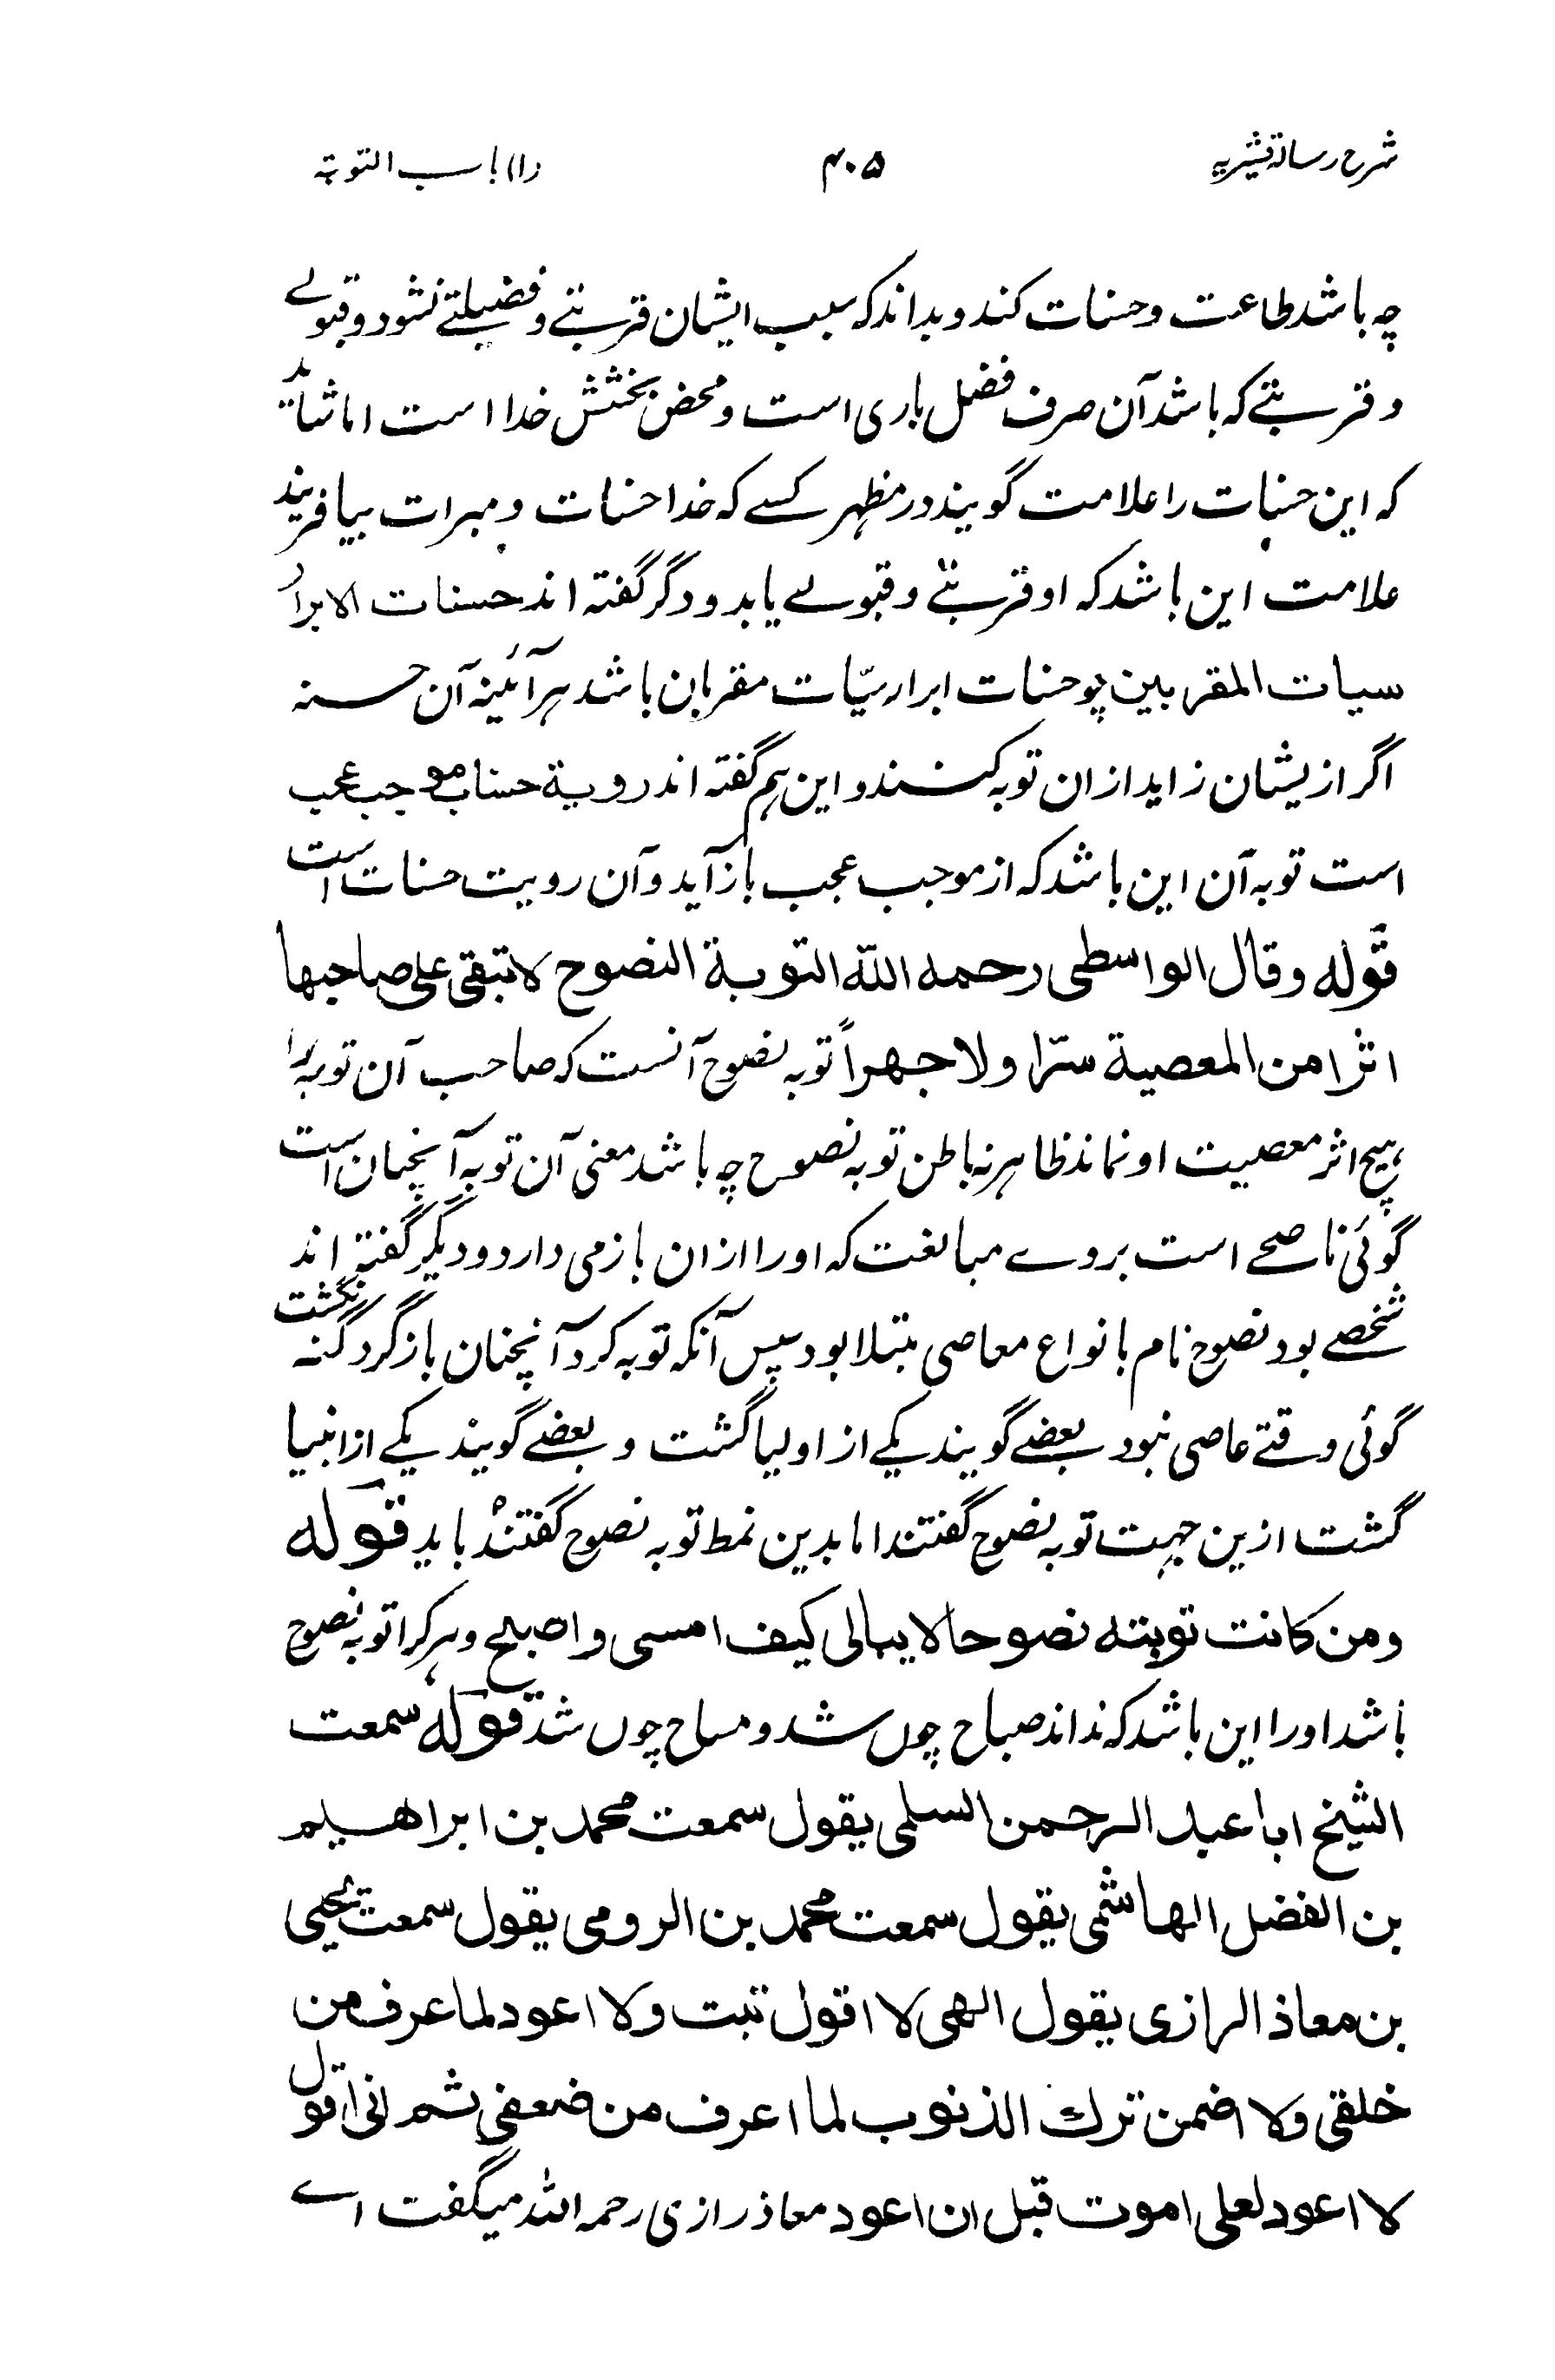 شرح رسالۂ قشیریہ ۴۰۵ (۱) باب التوبۃ
چہ باشد طاعت و حسنات کند و بداند کہ بسبب ایشان قربتے و فضیلتے نشود و قبولے
و قربتے کہ باشد آن صرف فضل باری است و محض بخشش خدا است اما شاید
کہ این حسنات را علامت گویند در مظہر کسے کہ خدا حسنات و مبرات بیافریند
علامت این باشد کہ او قربتے و قبولے یابد و دگر گفتہ اند حسنات الابرار
سیات المقربین چو حسنات ابرار سیّات مقربان باشد ہر آئینہ آن حسنہ
اگر ازیشان زاید ازان توبہ کنند و این ہم گفتہ اند رویۃ حسنات موجب عجب
است توبہ آن این باشد کہ از موجب عجب باز آید و آن رویت حسنات است
قوله وقال الواسطی رحمه اللّٰه التوبة النصوح لا تبقی علی صاحبها
اثرا من المعصیة سرّا ولا جهراً توبہ نصوح آنست کہ صاحب آن توبہ را
ہیچ اثر معصیت او نماند ظاہر نہ باطن توبہ نصوح چہ باشد معنی آن توبہ آنچنان است
گوئی ناصحے است بروے مبالغت کہ او را ازان باز می دارد و دیگر گفتہ اند
شخصے بود نصوح نام بانواع معاصی مبتلا بود سپس آنکہ توبہ کرد آنچنان باز گرد گنہ نگشت
گوئی وقتے عاصی نبود بعضے گویند یکے از اولیا گشت و بعضے گویند یکے از انبیا
گشت ازین جہت توبہ نصوح گفتند اما بدین نمط توبہ نصوح گفتند باید قوله
ومن کانت توبته نصوحا لا یبالی کیف امسی واصبح و ہر کرا توبہ نصوح
باشد او را این باشد کہ نداند صباح چوں شد و مساح چوں شد قوله سمعت
الشیخ ابا عبد الرحمن السلمی یقول سمعت محمد بن ابراهیم
بن الفضل الهاشمی یقول سمعت محمد بن الرومی یقول سمعت یحیی
بن معاذ الرازی یقول الهی لا اقول تبت ولا اعود لما عرف من
خلقی ولا اضمن ترك الذنوب لما اعرف من ضعفی ثم انی اقول
لا اعود لعلی اموت قبل ان اعود معاذ رازی رحمہ اللّٰہ میگفت اے